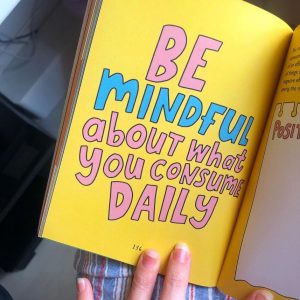 BE
MINDFUL
about what
you CONSUME
DAILY
POSIT